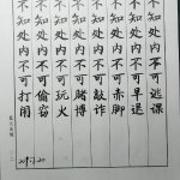 不知处内不可逃课
不知处内不可早退
不知处内不可赤脚
不知处内不可敲诈
不知处内不可赌博
不知处内不可玩火
不知处内不可偷窃
不知处内不可打闹